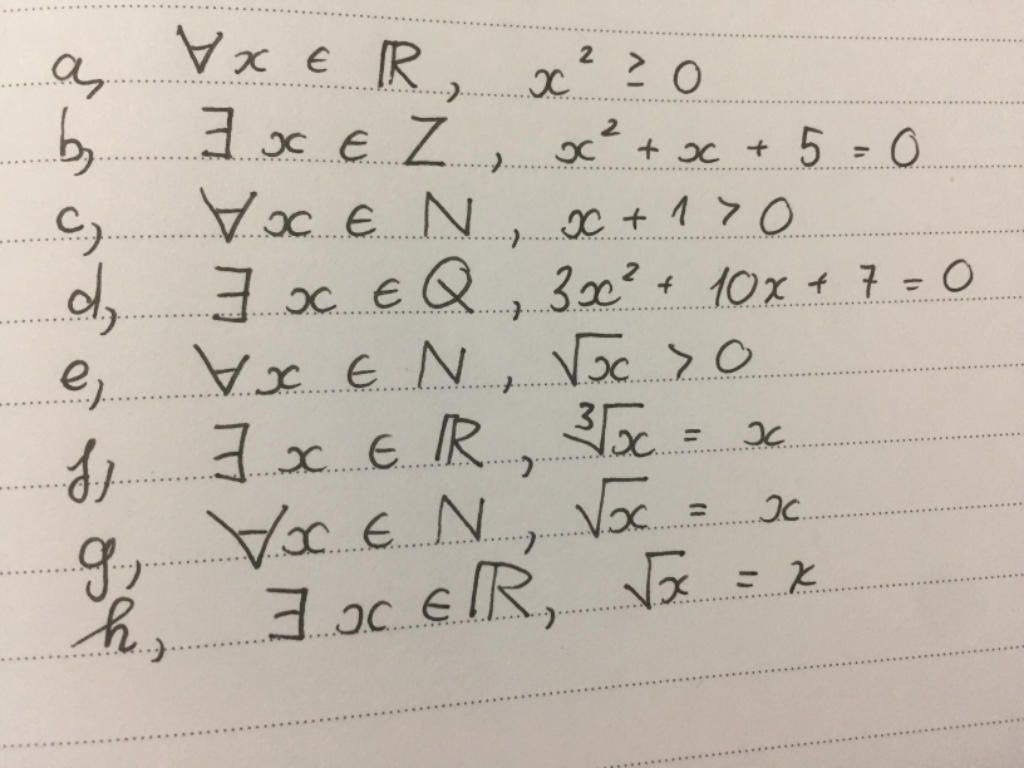 a, ∀x ∈ ℝ, x² ≥ 0
b, ∃ x ∈ Z, x² + x + 5 = 0
c, ∀x ∈ N, x + 1 > 0
d, ∃ x ∈ Q, 3x² + 10x + 7 = 0
e, ∀x ∈ N, √x > 0
f, ∃ x ∈ ℝ, ∛x = x
g, ∀x ∈ N, √x = x
h, ∃ x ∈ ℝ, √x = x